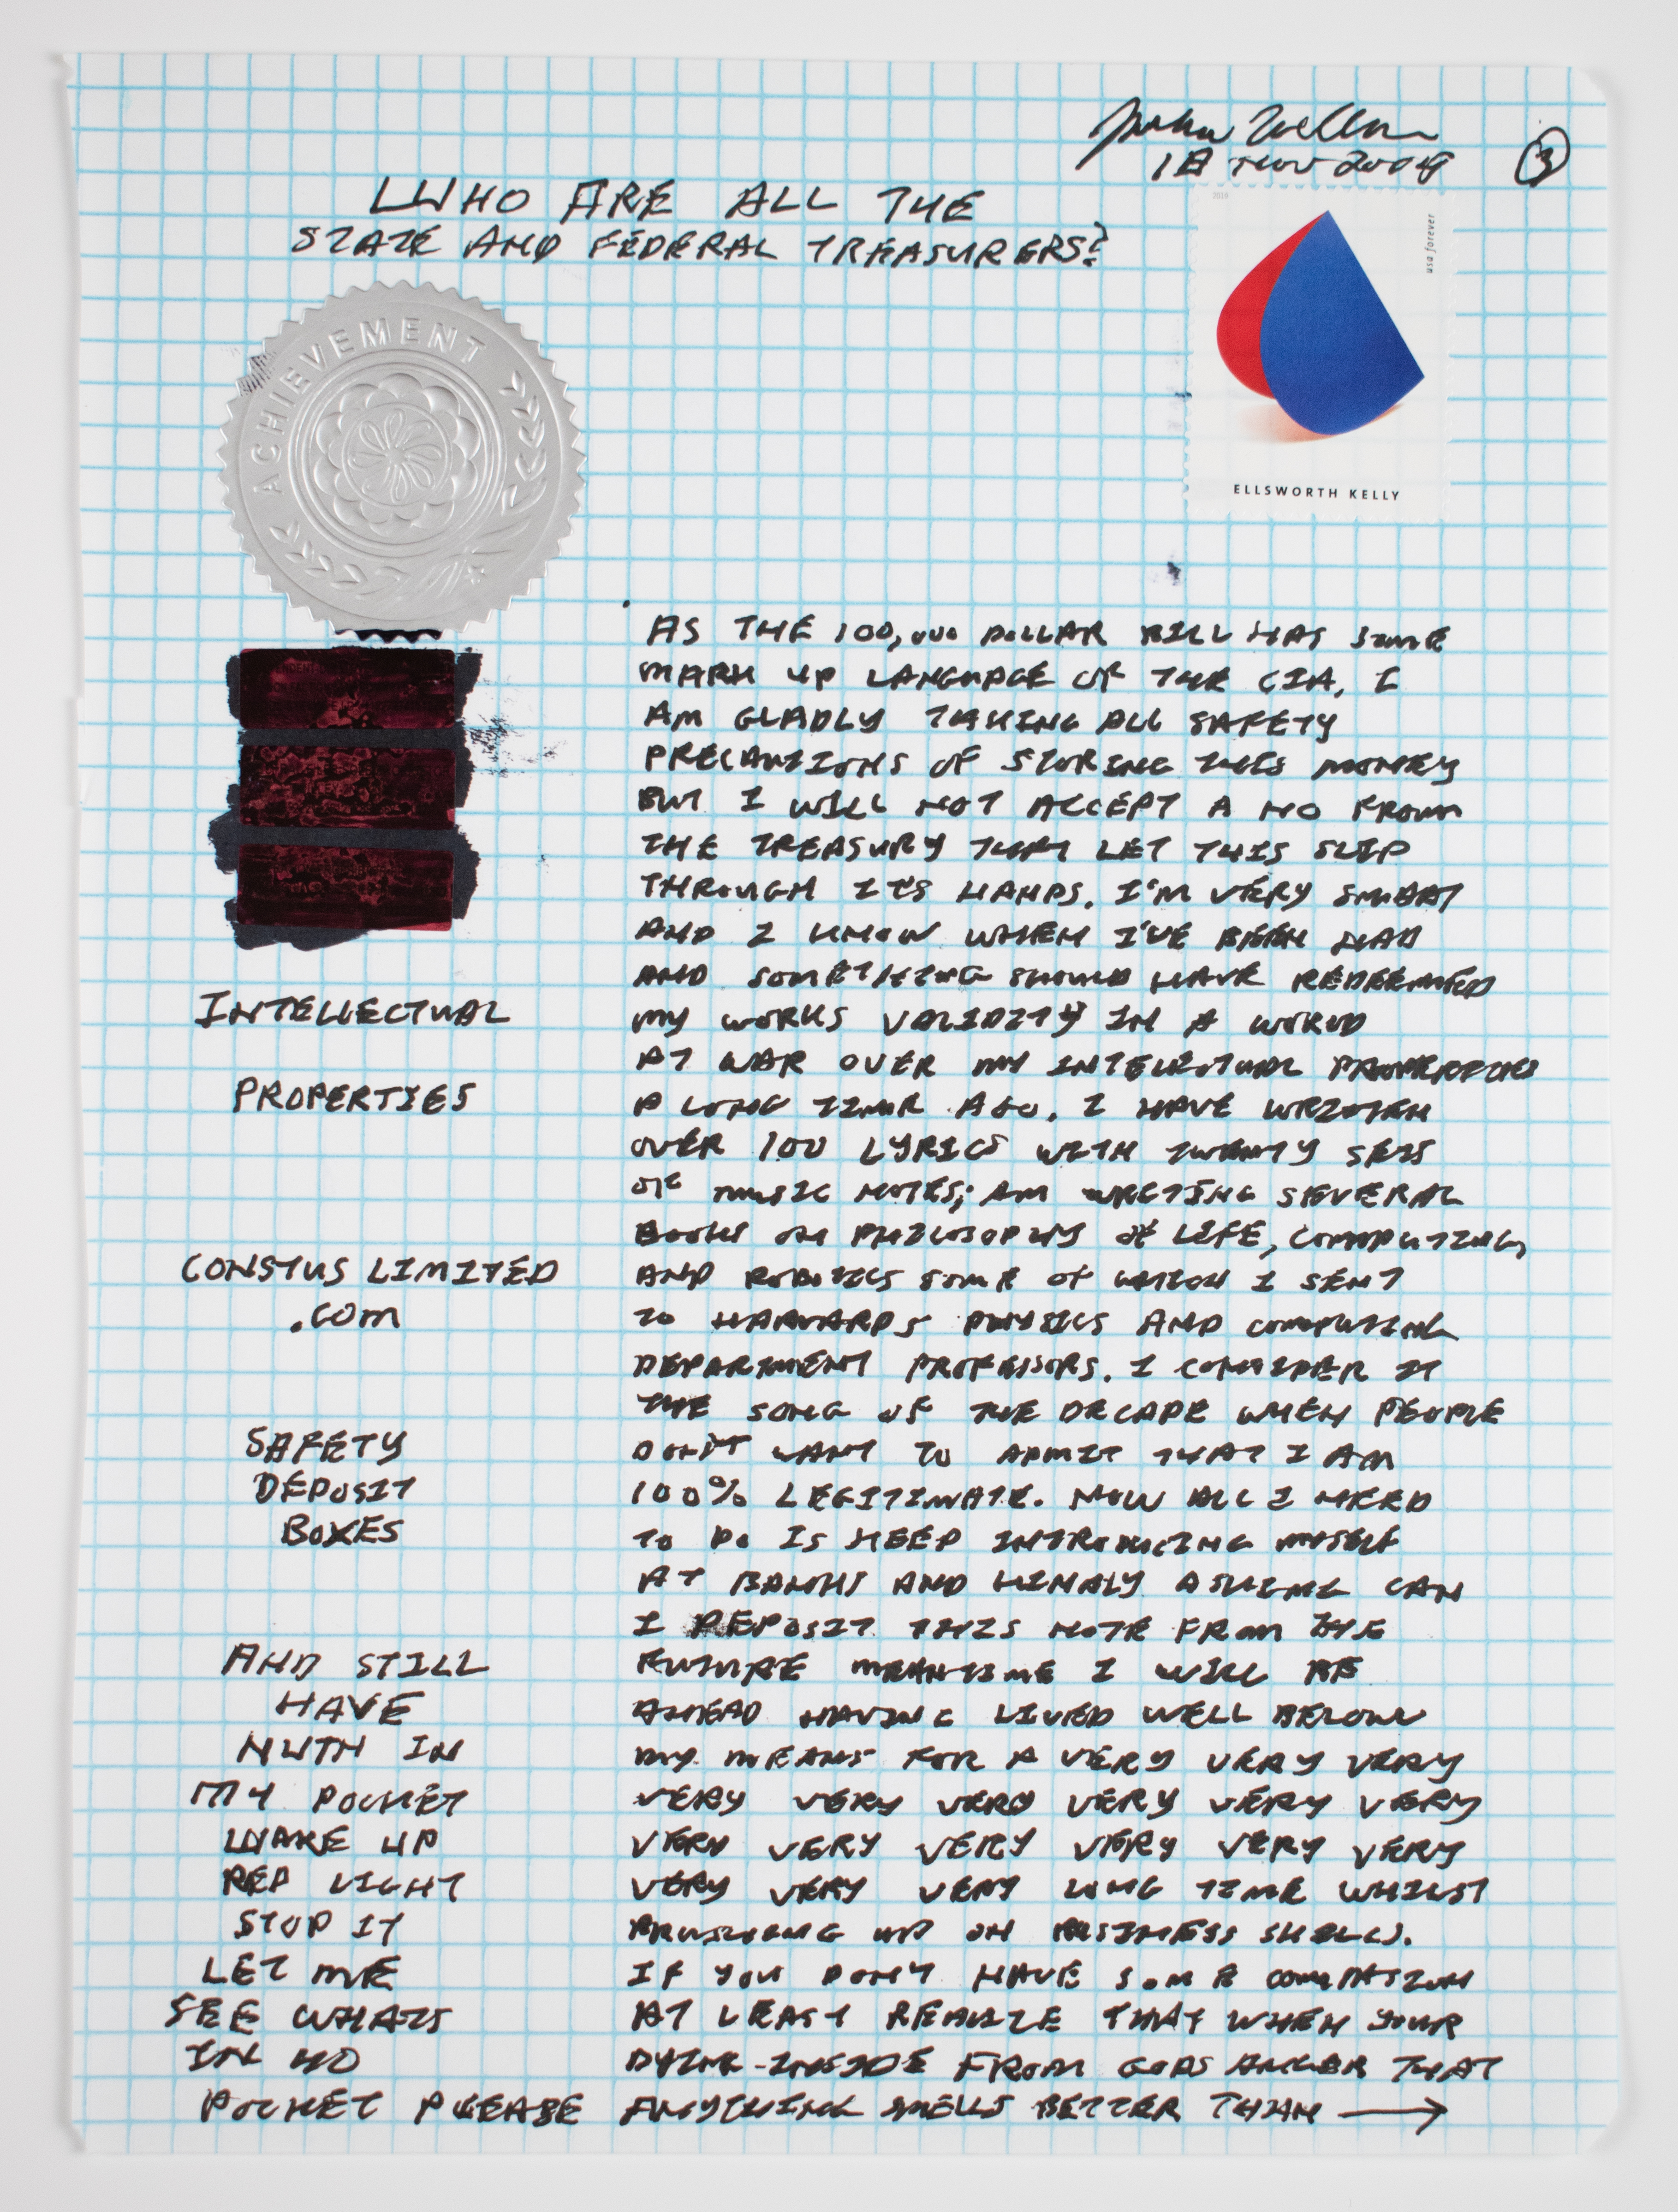 18 NOV 2009
3
WHO ARE ALL THE
STATE AND FEDERAL TREASURERS?
2019
usa forever
ELLSWORTH KELLY
ACHIEVEMENT
INTELLECTUAL
PROPERTIES
CONSTUS LIMITED
.COM
SAFETY
DEPOSIT
BOXES
AND STILL
HAVE
NUTH IN
MY POCKET
WAKE UP
RED LIGHT
STOP IT
LET ME
SEE WHATS
IN YO
POCKET PLEASE
AS THE 100,000 DOLLAR BILL HAS SOME
MARK UP LANGUAGE OF THE CIA, I
AM GLADLY TAKING ALL SAFETY
PRECAUTIONS OF STORING THIS MONEY
BUT I WILL NOT ACCEPT A NO FROM
THE TREASURY THAT LET THIS SLIP
THROUGH IT'S HANDS. I'M VERY SMART
AND I KNOW WHEN I'VE BEEN HAD
AND SOMETHING SHOULD HAVE REDEEMED
MY WORKS VALIDITY IN A WORLD
AT WAR OVER MY INTELECTUAL PROPERTIES
A LONG TIME AGO. I HAVE WRITTEN
OVER 100 LYRICS WITH TWENTY SETS
OF MUSIC NOTES; AM WRITING SEVERAL
BOOKS ON PHILOSOPHY OF LIFE, COMPUTING,
AND ROBOTICS SOME OF WHICH I SENT
TO HARVARDS PHYSICS AND COMPUTING
DEPARTMENT PROFESSORS. I CONSIDER IT
THE SONG OF THE DECADE WHEN PEOPLE
DON'T WANT TO ADMIT THAT I AM
100% LEGITIMATE. NOW ALL I NEED
TO DO IS KEEP INTRODUCING MYSELF
AT BANKS AND KINDLY ASKING CAN
I DEPOSIT THIS NOTE FROM THE
FUTURE MEANTIME I WILL BE
AHEAD HAVING LIVED WELL BELOW
MY MEANS FOR A VERY VERY VERY
VERY VERY VERY VERY VERY VERY
VERY VERY VERY VERY VERY VERY
VERY VERY VERY LONG TIME WHILST
BRUSHING UP ON BUSINESS SKILLS.
IF YOU DON'T HAVE SOME COMPASSION
AT LEAST REALIZE THAT WHEN YOUR
DYING INSIDE FROM GODS ANGER THAT
ANYTHING SMELLS BETTER THAN →